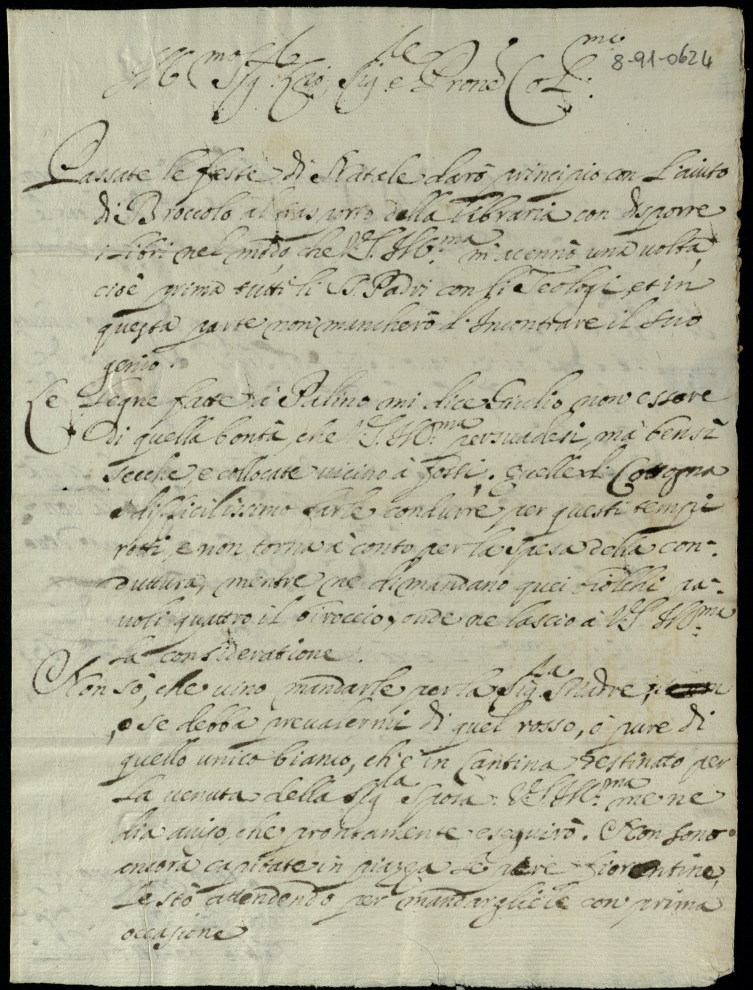 8-91-0624
Ill.mo Sig.re Sig.re e Prone Col.mo
Passate le feste di Natale darò principio con l'aiuto
di Broccolo al trasporto della libraria con disporre
i libri nel modo, che V.S. Ill.ma m'acennò una volta,
cioè prima tutti li S. Padri con li Teologi, et in
questa parte non mancherò d'incontrare il suo
genio.
Le legne fatte à Palino mi dice Giulio non essere
di quella bontà, che V.S. Ill.ma persuadesi, mà bensì
secche, e collocate vicino à fossi. Quelle di Cotogna
è difficilissimo farle condurre per questi tempi
rotti, e non torna à conto per la spesa della con-
duttura, mentre ne dimandano quei biolchi pa-
voli quattro il biroccio, onde ne lascio à V.S. Ill.ma
la consideratione.
Non sò, che vino mandarle per la Sig.ra Madre,
, e se debba prevalermi di quel rosso, ò pure di
quello unico bianco, ch'è in Cantina destinato per
la venuta della Sig.la Sposa. V.S. Ill.ma me ne
dia aviso, che prontamente eseguirò. Non sono
ancora capitate in piazza le pere fiorentine,
le stò attendendo per mandargliele con prima
occasione